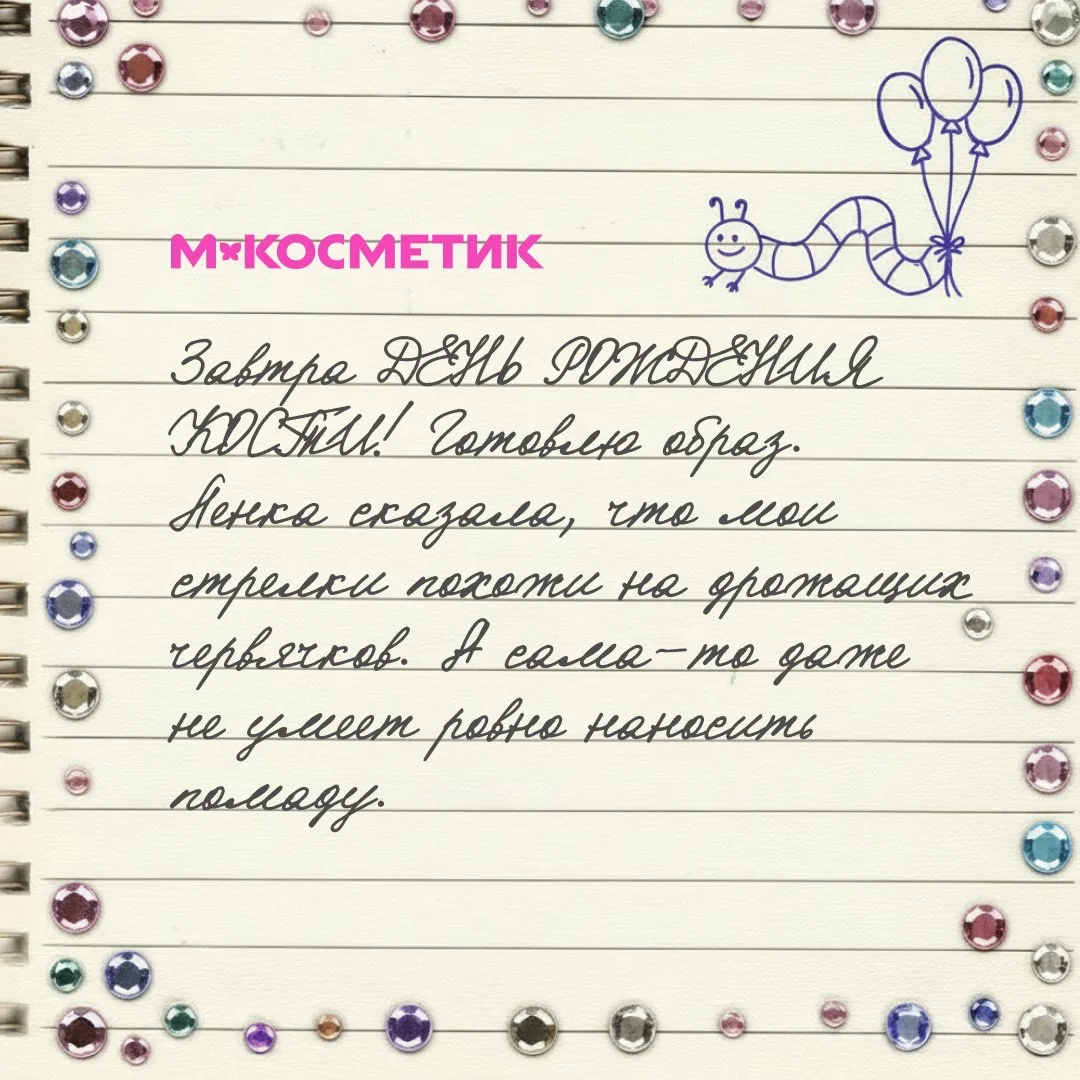 М КОСМЕТИК
Завтра ДЕНЬ РОЖДЕНИЯ
КОСТИ! Готовлю образ.
Ленка сказала, что мои
стрелки похожи на дрожащих
червячков. А сама-то даже
не умеет ровно наносить
помаду.